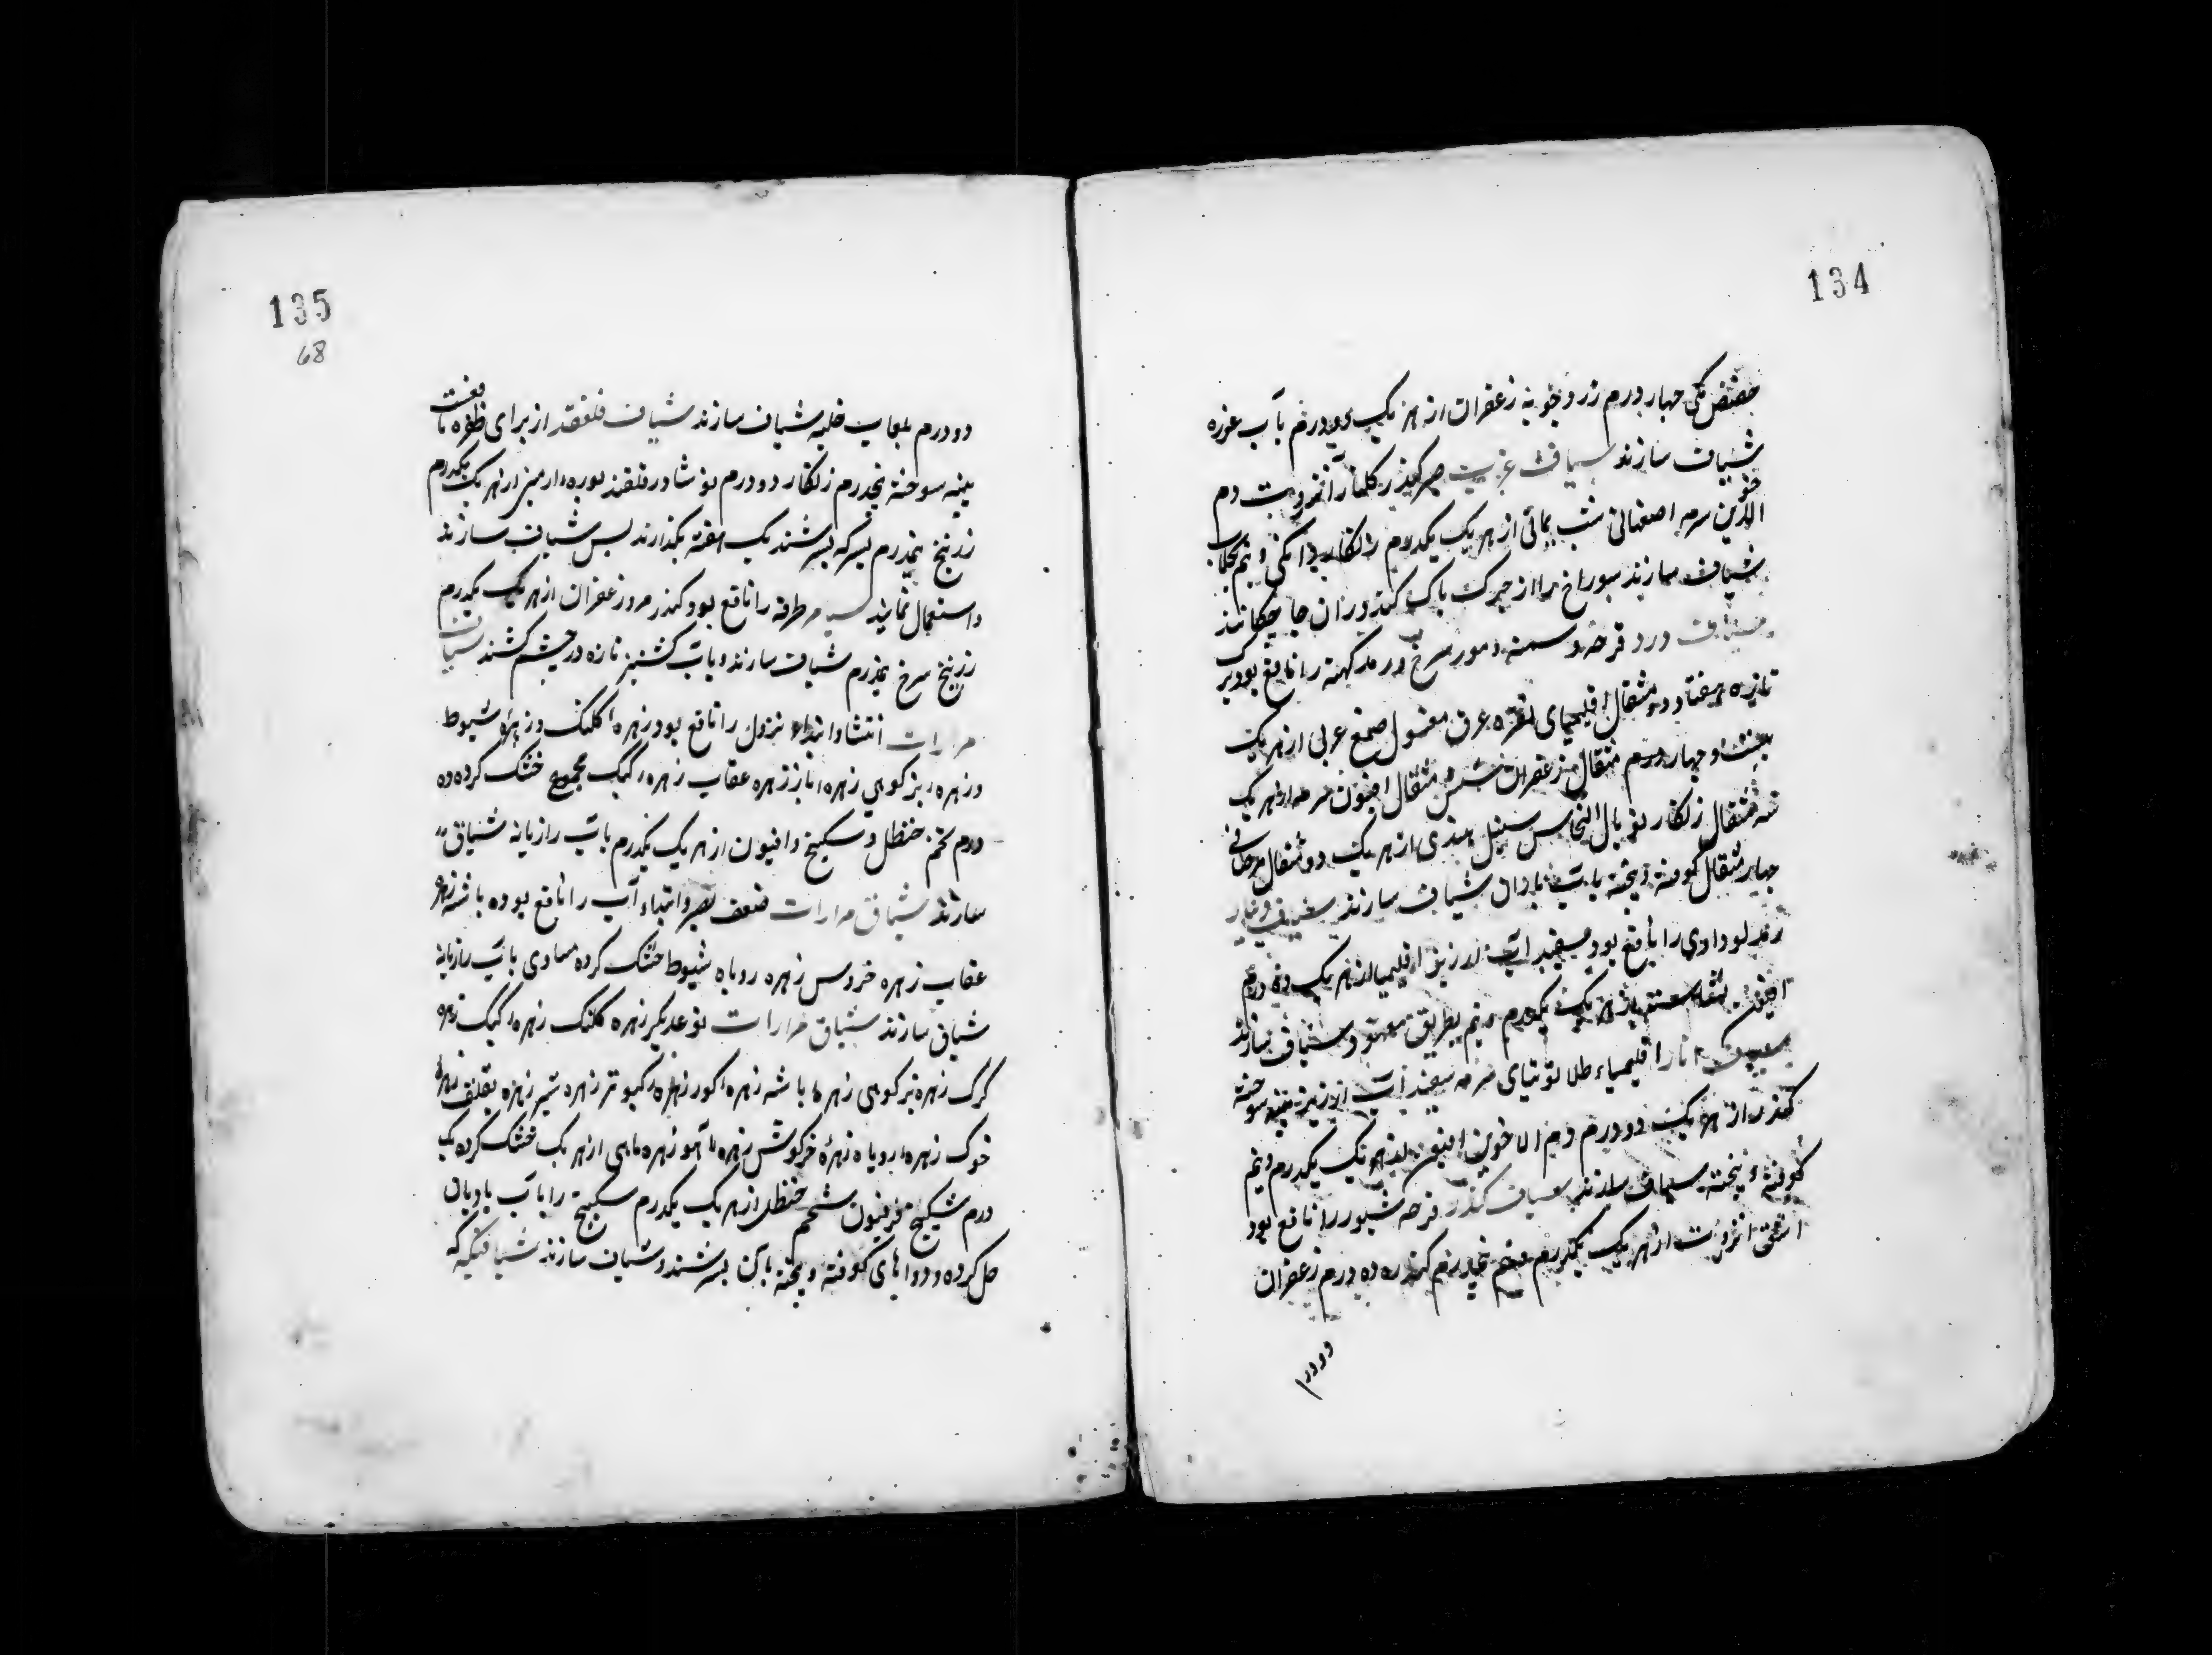 134
حضض مکی چهار درم زرد چوبه زعفران از هر یک دو درم بآب غوره
شیاف سازند شیاف غرب صبر کندر کلنار انزروت دم
الاخوین سرمه اصفهانی شب یمانی از هر یک یکدرم زنکار دانکی و نیم بکلاب
شیاف سازند سوراخ را از چرک پاک کنند و در ان جا چکانند
شیاف ورد قرحه و مور سرخ و رمد کهنه را نافع بود برک
تازه هفتاد دو مثقال اقلیمیای نقره عرق مغسول صمغ عربی از هر یک
بیست و چهار مثقال زعفران شش مثقال افیون سرمه از هر یک
سه مثقال زنکار توبال النحاس سنبل هندی از هر یک دو مثقال مرصافی
چهار مثقال کوفته و پخته بآب باران شیاف سازند شیاف دینار
را نافع بود سفید آب ارزیز اقلیمیا از هر یک ده درم
افیون نشاسته از هر یک یکدرم و نیم بطریق معهود شیاف سازند
انار اقلیمیاء طلا توتیای سرمه سفید آب ارزیز سوخته
کندر از هر یک دو درم دم الاخوین افیون از هر یک یکدرم و نیم
کوفته و پخته شیاف سازند شیاف کندر قرحه را نافع بود
اشق انزروت از هر یک یکدرم و نیم کندر ده درم زعفران
دو درم
135
68
دو درم بلعاب حلبه شیاف سازند شیاف قلقند از برای ظفره نافعست
سوخته پنجدرم زنکار دو درم نوشادر قلقند بوره ارمنی از هر یک یکدرم
زرنیخ نیمدرم بسرکه بسرشند یک هفته بکذارند پس شیاف سازند
و استعمال نمایند طرفه را نافع بود کندر مر و زعفران از هر یک یکدرم
زرنیخ سرخ نیمدرم شیاف سازند و بآب کشنیز تازه در چشم کشند شیاف
مرارات انتشار و ابتداء نزول را نافع بود زهره کلنک و زهره شبوط
و زهره بز کوهی زهره باز زهره عقاب زهره کبک مجموع خشک کرده ده
درم تخم حنظل و سکبینج و افیون از هر یک یکدرم بآب رازیانه شیاف
سازند شیاف مرارات ضعف بصر و ابتداء آب را نافع بود باشه زهره
عقاب زهره خروس زهره روباه شبوط خشک کرده مساوی بآب رازیانه
شیاف سازند شیاف مرارات نوعدیکر زهره کلنک زهره کبک زهره
کرک زهره بز کوهی زهره باشه زهره کور زهره کبوتر زهره شیر زهره
خوک زهره روباه زهره خرکوش زهره آهو زهره ماهی از هر یک خشک کرده یک
درم سکبینج فرفیون شحم حنظل از هر یک یکدرم سکبینج را بآب بادیان
حل کرده و دواهای کوفته و پخته بآن بسرشند و شیاف سازند شیافیکه که